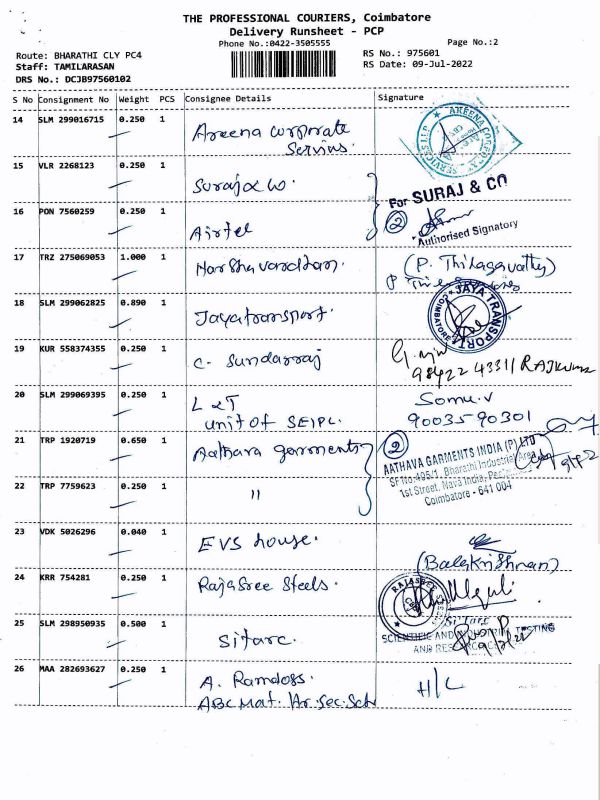 THE PROFESSIONAL COURIERS, Coimbatore
Delivery Runsheet - PCP
Phone No.:0422-3505555
Page No.:2
Route: BHARATHI CLY PC4
RS No.: 975601
Staff: TAMILARASAN
RS Date: 09-Jul-2022
DRS No.: DCJB97560102
S No Consignment No Weight PCS Consignee Details Signature
14 SLM 299016715 0.250 1 Areena Corporate
Servius.
AREENA CORPORATE SERVICES LLP
15 VLR 2268123 0.250 1 Suraj & Co.
For SURAJ & CO
16 PON 7560259 0.250 1 Airtel
2
Authorised Signatory
17 TRZ 275069053 1.000 1 Harshavardhan.
(P. Thilagavathy)
18 SLM 299062825 0.890 1 Jayatransport.
JAYA TRANSPORT
COIMBATORE
19 KUR 558374355 0.250 1 C. Sundarraj
98422 43311 RAJKUMAR
20 SLM 299069395 0.250 1 L &T
Unit of SEIPL.
Somu.V
9003590301
21 TRP 1920719 0.650 1 Aathava garments
2
AATHAVA GARMENTS INDIA (P) LTD
SF No.495/1, Bharathi Industrial Area
1st Street, Nava India,
Coimbatore - 641 004
22 TRP 7759623 0.250 1 "
23 VDK 5026296 0.040 1 EVS house.
(Balakrishnan)
24 KRR 754281 0.250 1 RajaSree Steels.
RAJASREE
25 SLM 298950935 0.500 1 Sitarc.
Sitarc
SCIENTIFIC AND INDUSTRIAL TESTING
AND RESEARCH
26 MAA 282693627 0.250 1 A. Ramdoss.
ABC Mat. Hr. Sec. Sch
H/C